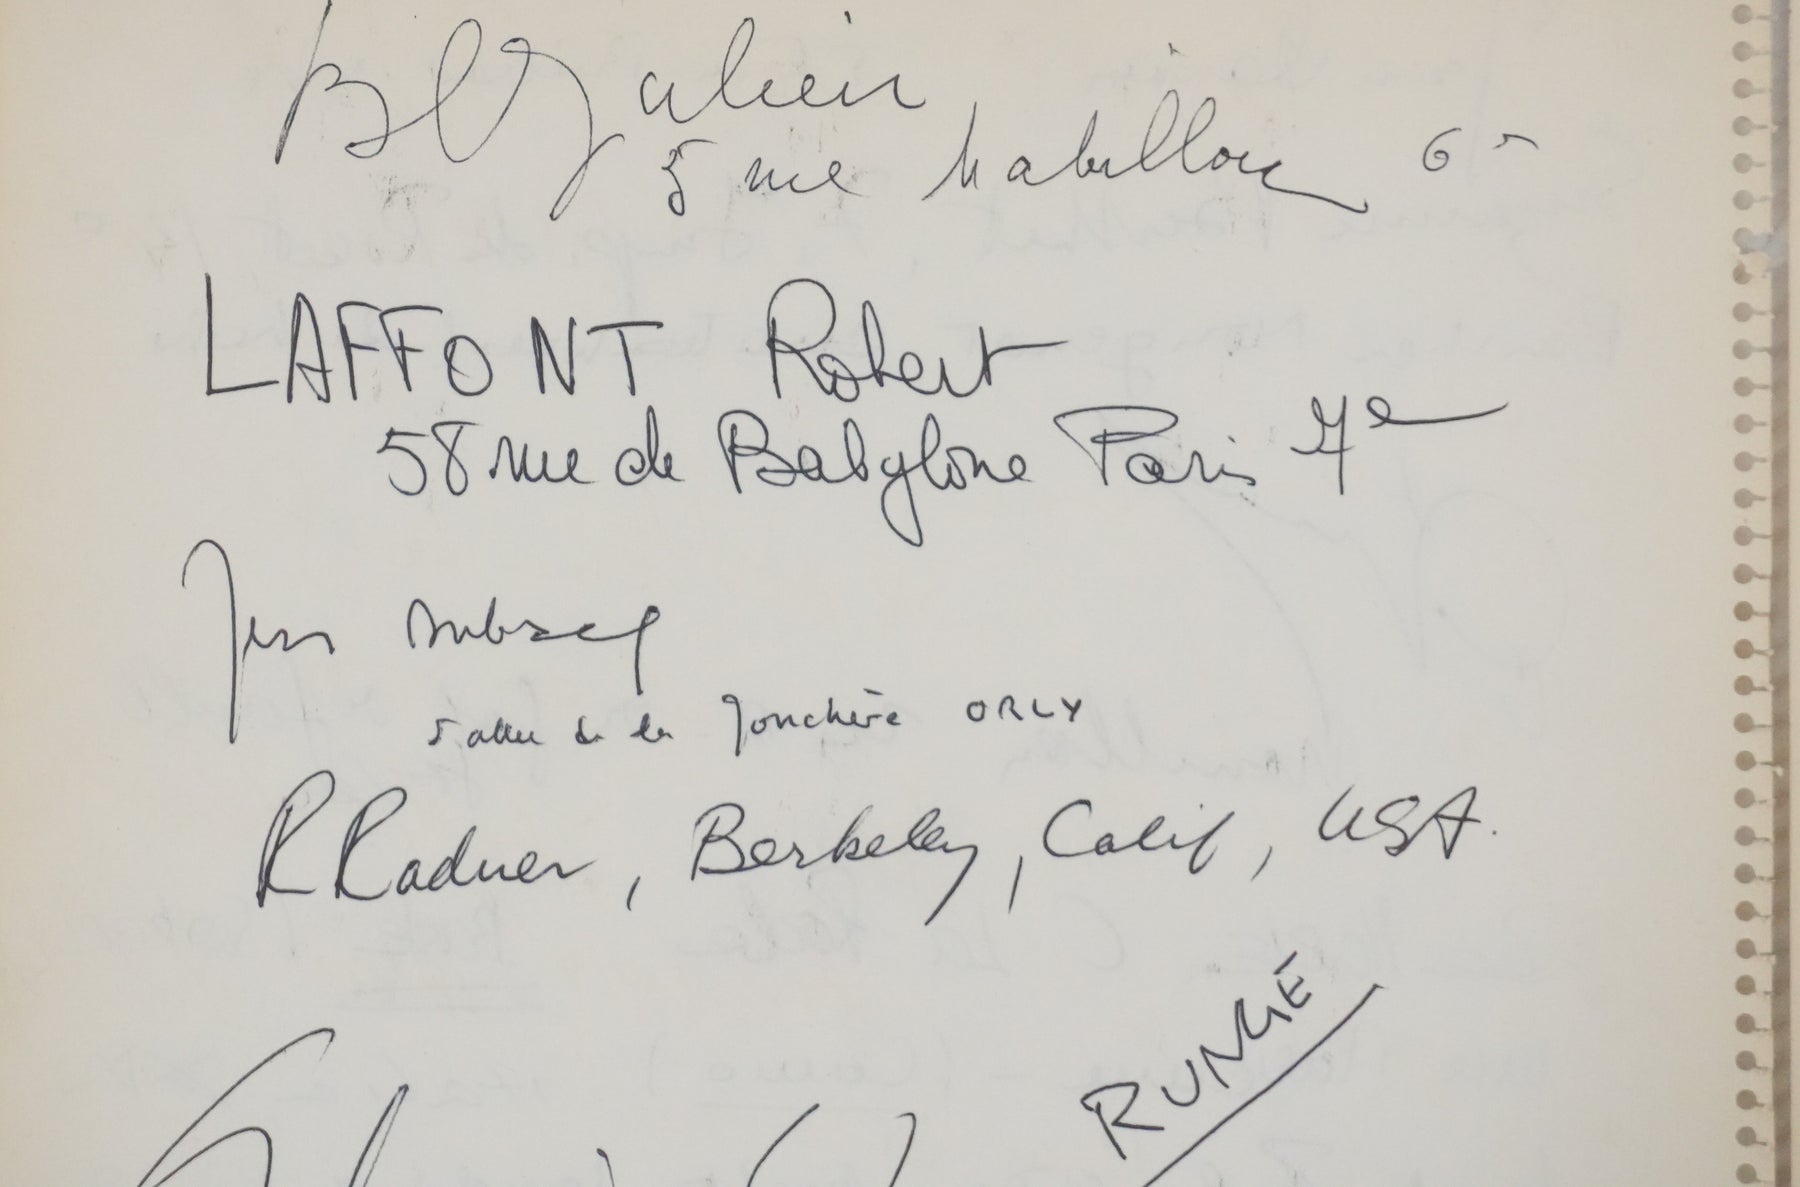 5 rue Mabillon 6e
LAFFONT Robert
58 rue de Babylone Paris 7e
Jean
5 allée de la Jonchère ORLY
R Radner, Berkeley, Calif, USA.
RUNGE